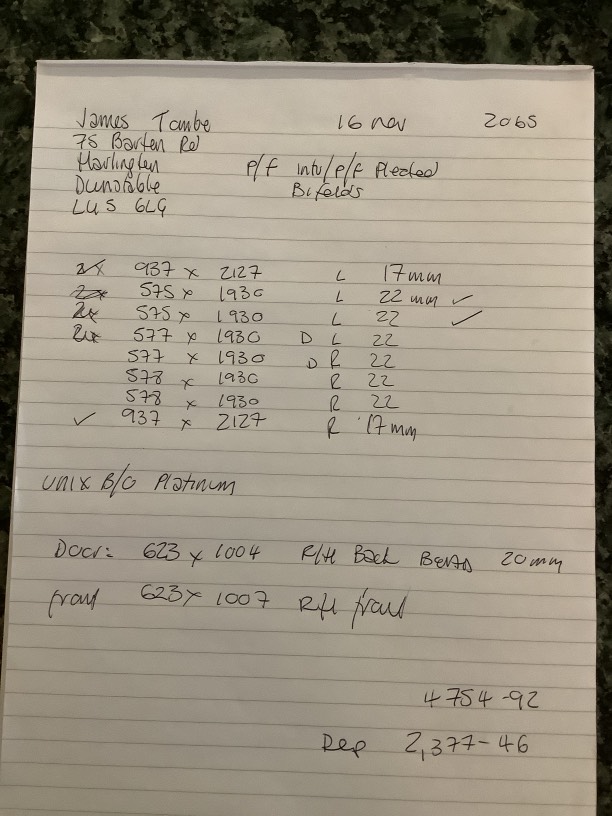 James Tombe 16 nov 2065
75 Barton Rd
Harlington
Dunstable
LU5 6LG
P/f Intu/P/f Pleated
Bifolds
2x 937 x 2127 L 17mm
2x 575 x 1930 L 22 mm ✓
2x 575 x 1930 L 22 ✓
2x 577 x 1930 D L 22
577 x 1930 D R 22
578 x 1930 R 22
578 x 1930 R 22
✓ 937 x 2127 R 17mm
Unix B/O Platinum
Door: 623 x 1004 R/H Back 20mm
front 623 x 1007 R/H front
4754-92
Dep 2,377-46